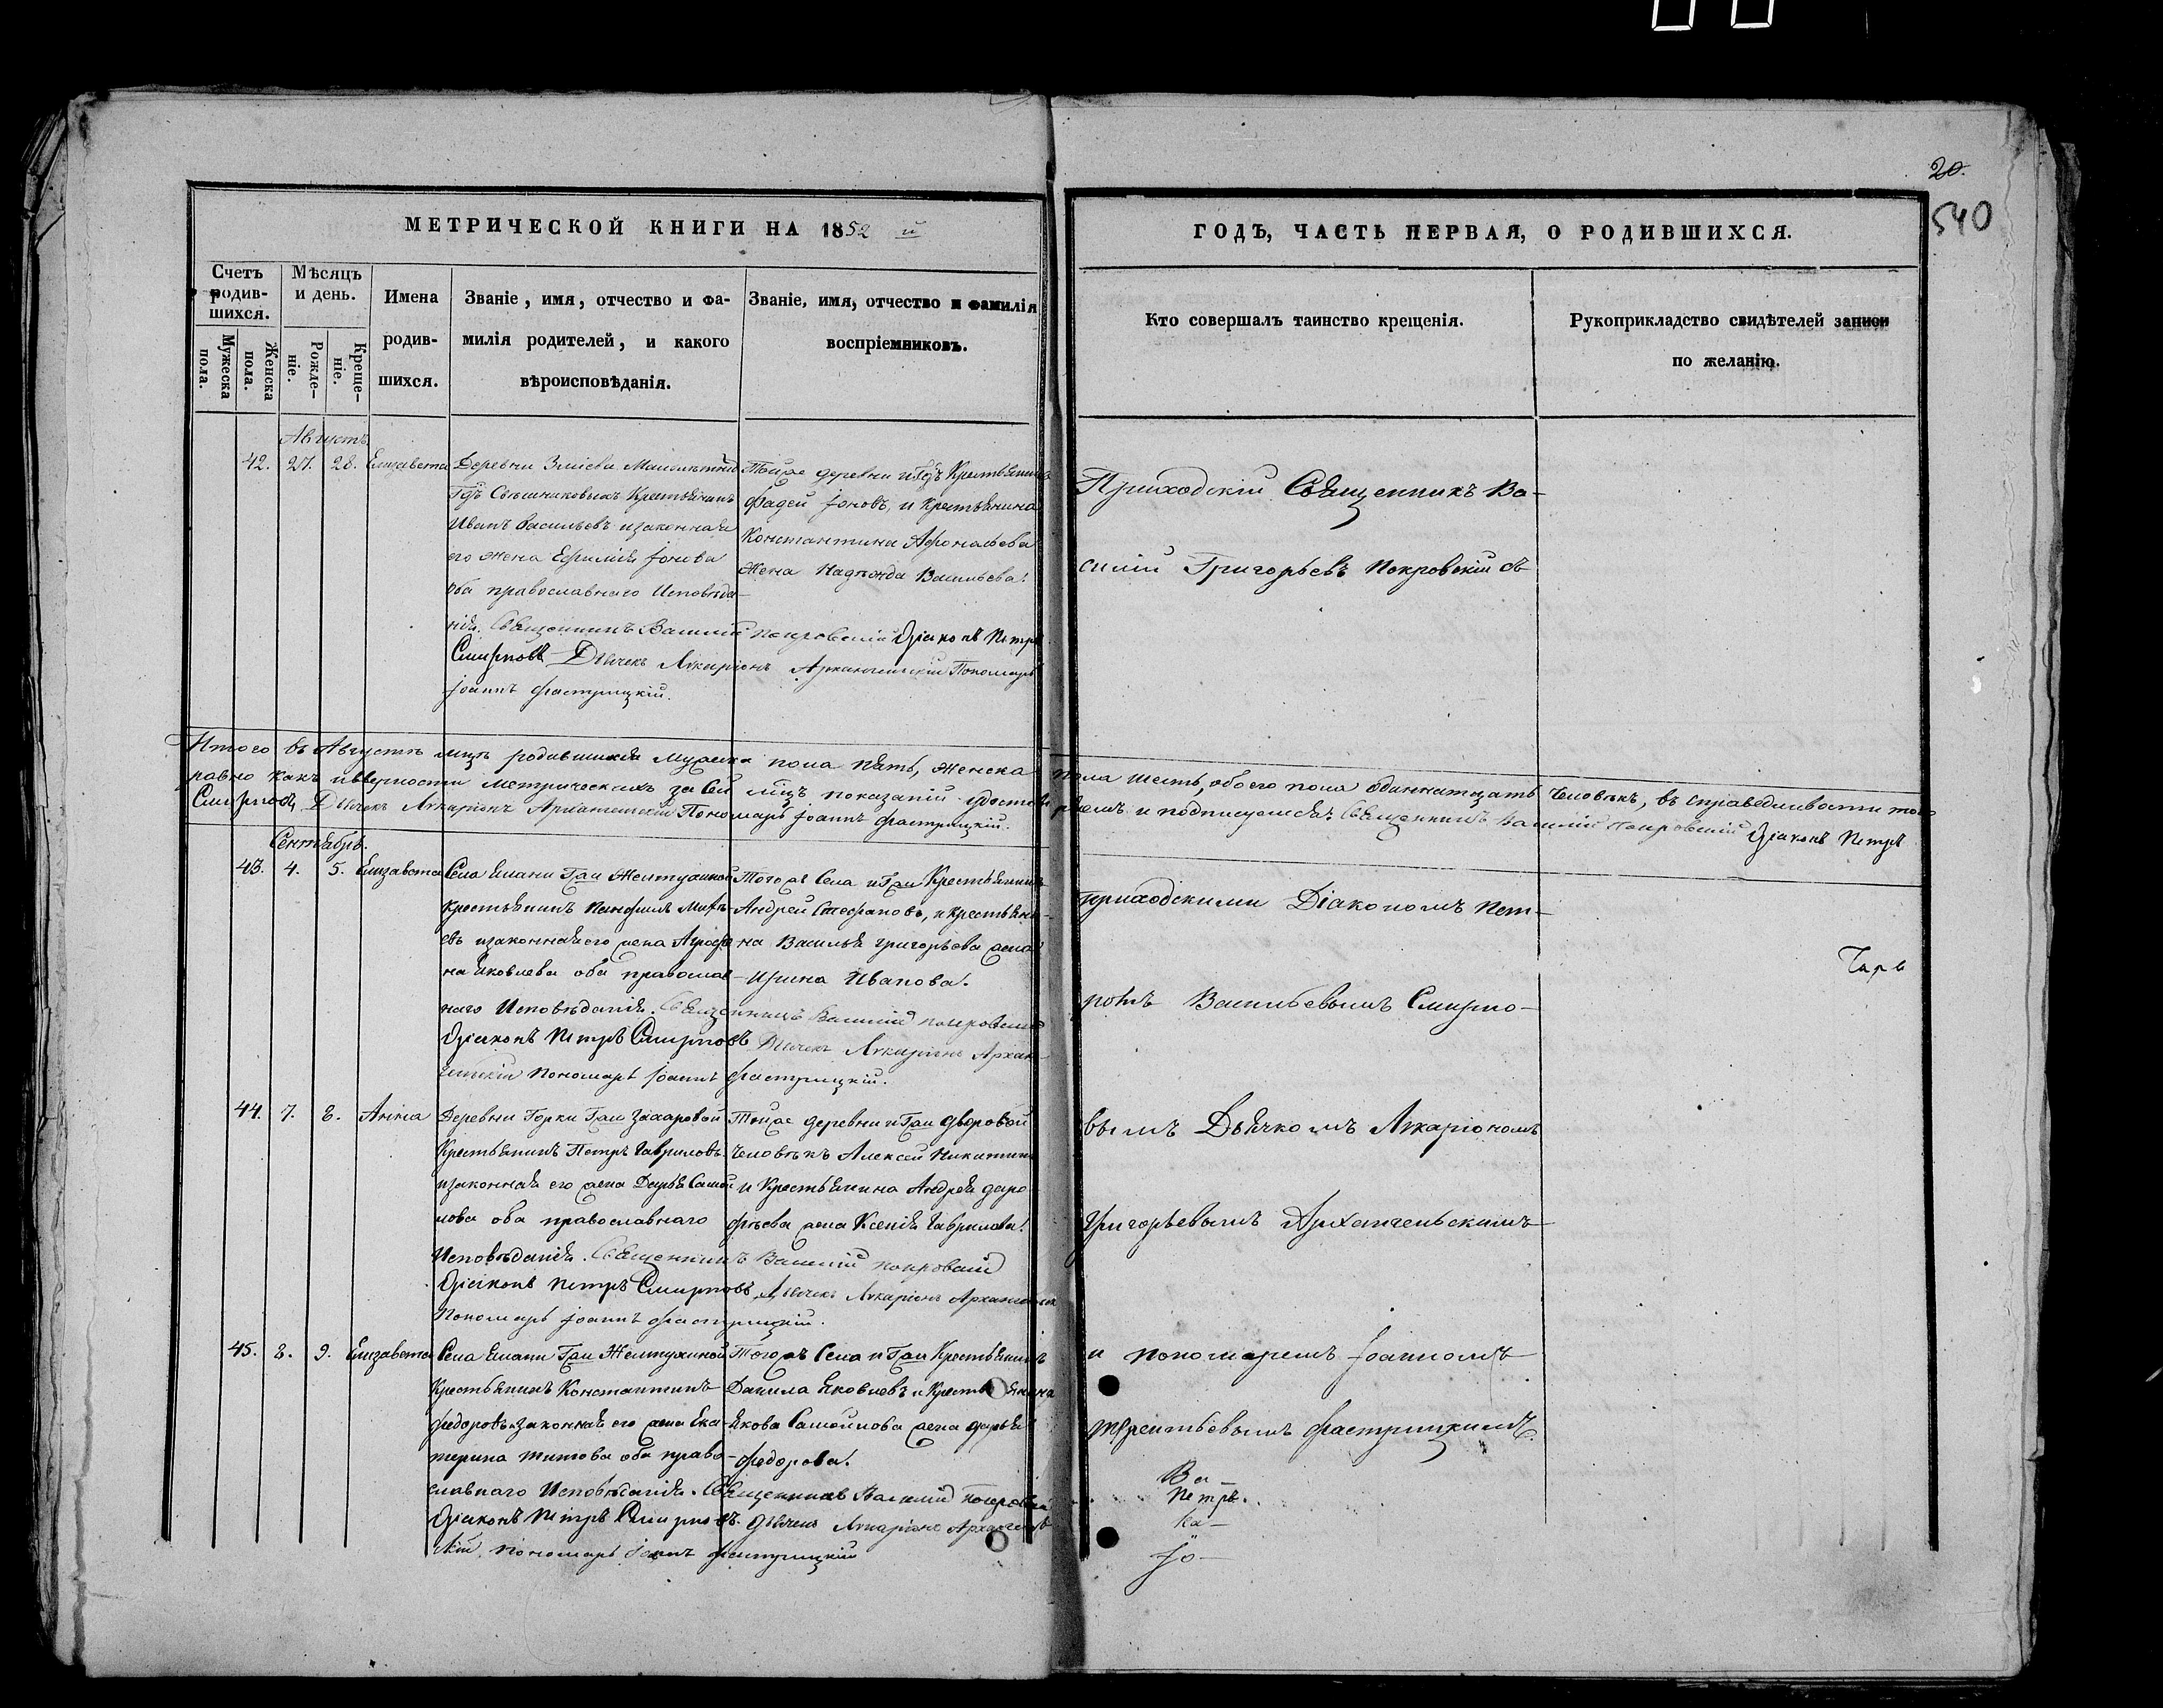 20.
540
МЕТРИЧЕСКОЙ КНИГИ НА 1852 й
ГОДЪ, ЧАСТЬ ПЕРВАЯ, О РОДИВШИХСЯ.
Счетъ родив-шихся.
Мужеска пола.
Женска пола.
Мѣсяцъ и день.
Рожде-ніе.
Креще-ніе.
Имена
родив-
шихся.
Званіе, имя, отчество и фа-
милія родителей, и какого
вѣроисповѣданія.
Званіе, имя, отчество и фамилія
воспріемниковъ.
Кто совершалъ таинство крещенія.
Рукоприкладство свидѣтелей записи
по желанію.
Августъ
42. 27. 28. Елизавета
Деревни
Крестьянинъ
Иванъ Васильевъ и законная
его жена Ефимія Іонова
оба православнаго Исповѣда-
нія. Священникъ Василій Покровскій Діаконъ Петръ
Смирновъ Дьячекъ Иларіонъ Архангельскій Пономарь
Іоаннъ Фастрицкій.
Тойже деревни и Крестьянинъ
Фадей Іоновъ, и Крестьянина
Константина Афонасьева
Жена Надежда Васильева.
Приходскій Священникъ Ва-
силій Григорьевъ Покровскій съ
Итого въ Августѣ мцѣ родившихся мужеска пола пять, женска пола шесть, обоего пола одиннатцать человѣкъ, въ справедливости того
равно какъ и вѣрности метрическихъ за сей мцъ показаній удостовѣряемъ и подписуемся: Священникъ Василій Покровскій Діаконъ Петръ
Смирновъ, Дьячекъ Иларіонъ Архангельскій Пономарь Іоаннъ Фастрицкій.
Сентябрь.
43. 4. 5. Елизавета
Села Елани Гжи Желтухиной
Крестьянинъ Панфилъ
евъ и законная его жена Агрофе
на Яковлева оба православ-
наго Исповѣданія. Священникъ Василій Покровскій
Діаконъ Петръ Смирновъ Дьячекъ Иларіонъ Архан-
гельскій Пономарь Іоаннъ Фастрицкій.
Тогожъ Села и Гжи Крестьянинъ
Андрей Стефановъ, и крестьяни-
на Василья Григорьева жена
Ирина Иванова.
приходскими Діакономъ Пет-
ромъ Васильевымъ Смирно-
44. 7. 8. Анна
Деревни Горки Гжи Захаровой
Крестьянинъ Петръ Гавриловъ
и законная его жена Дарья Самой
лова оба православнаго
Исповѣданія. Священникъ Василій Покровскій
Діаконъ Петръ Смирновъ, Дьячекъ Иларіонъ Архангельск
Пономарь Іоаннъ Фастрицкій.
Тойже деревни и Гжи дворовой
человѣкъ Алексѣй Никитинъ
и Крестьянина Андрея Доро
фѣева жена Ксенія Гаврилова.
вымъ Дьячкомъ Иларіономъ
Григорьевымъ Архангельскимъ
45. 8. 9. Елизавета
Села Елани Гжи Желтухиной
Крестьянинъ Константинъ
Федоровъ и законная его жена Ека-
терина Титова оба право-
славнаго Исповѣданія. Священникъ Василій Покровскій
Діаконъ Петръ Смирновъ. Дьячекъ Иларіонъ Архангель
скій, Пономарь Іоаннъ Фастрицкій
Тогожъ Села и Гжи Крестьянинъ
Данила Яковлевъ и Крестьянина
Якова Самойлова жена Дарья
Федорова.
и пономаремъ Іоанномъ
Терентьевымъ Фастрицкимъ.
Ва-
Петръ.
Ка-
Іо-